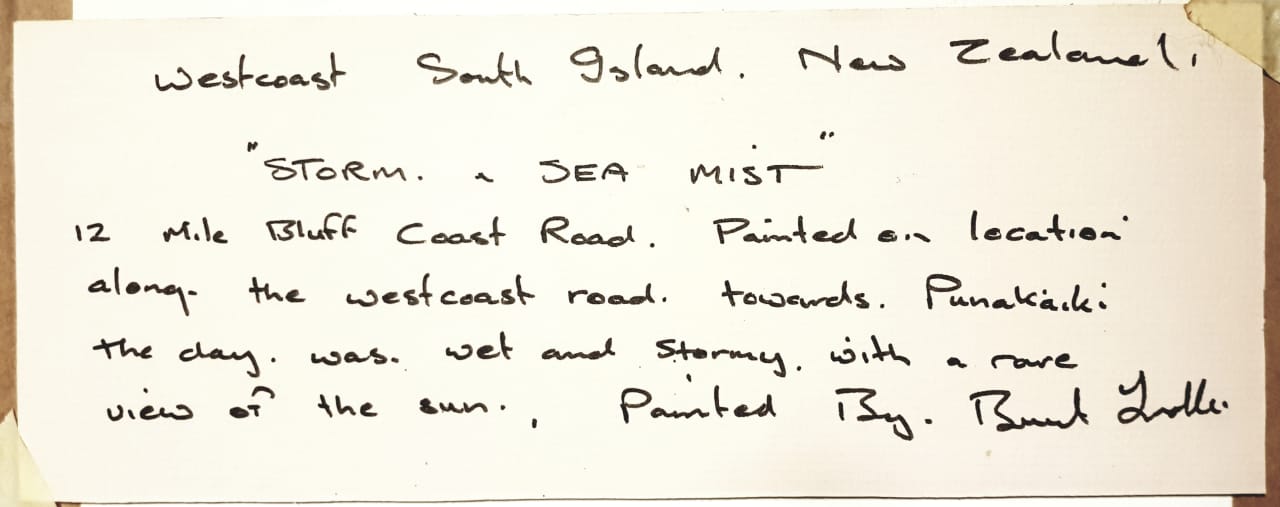 Westcoast South Island. New Zealand.
"STORM. & SEA MIST"
12 Mile Bluff Coast Road. Painted on location
along. the westcoast road. towards. Punakaiki
the day. was. wet and stormy. with a rare
view of the sun. , Painted By.